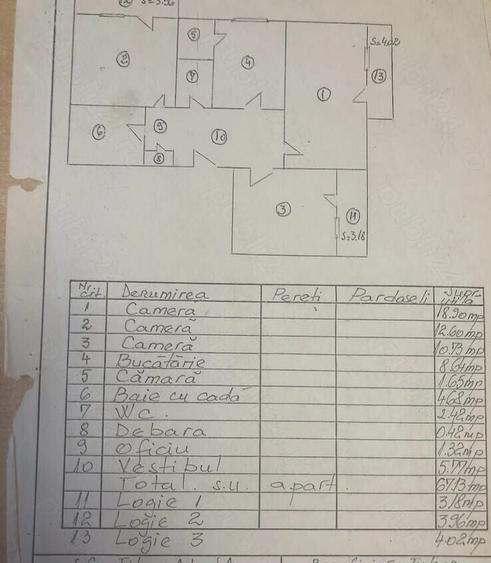 12 S=3.96
5
2
4
S=4.02
7
13
1
9
6
10
8
3
11
S=3.18
Nr. crt. Denumirea Pereti Pardoseli Supr. utila
1 Camera 18.90mp
2 Cameră 12.60mp
3 Cameră 10.73mp
4 Bucătărie 8.64mp
5 Cămară 1.65mp
6 Baie cu cadă 4.68mp
7 W.C. 2.42mp
8 Debara 0.42mp
9 Oficiu 1.32mp
10 Vestibul 5.77mp
Total s.u. apart. 67.13mp
11 Logie 1 3.18mp
12 Logie 2 3.96mp
13 Logie 3 4.02mp